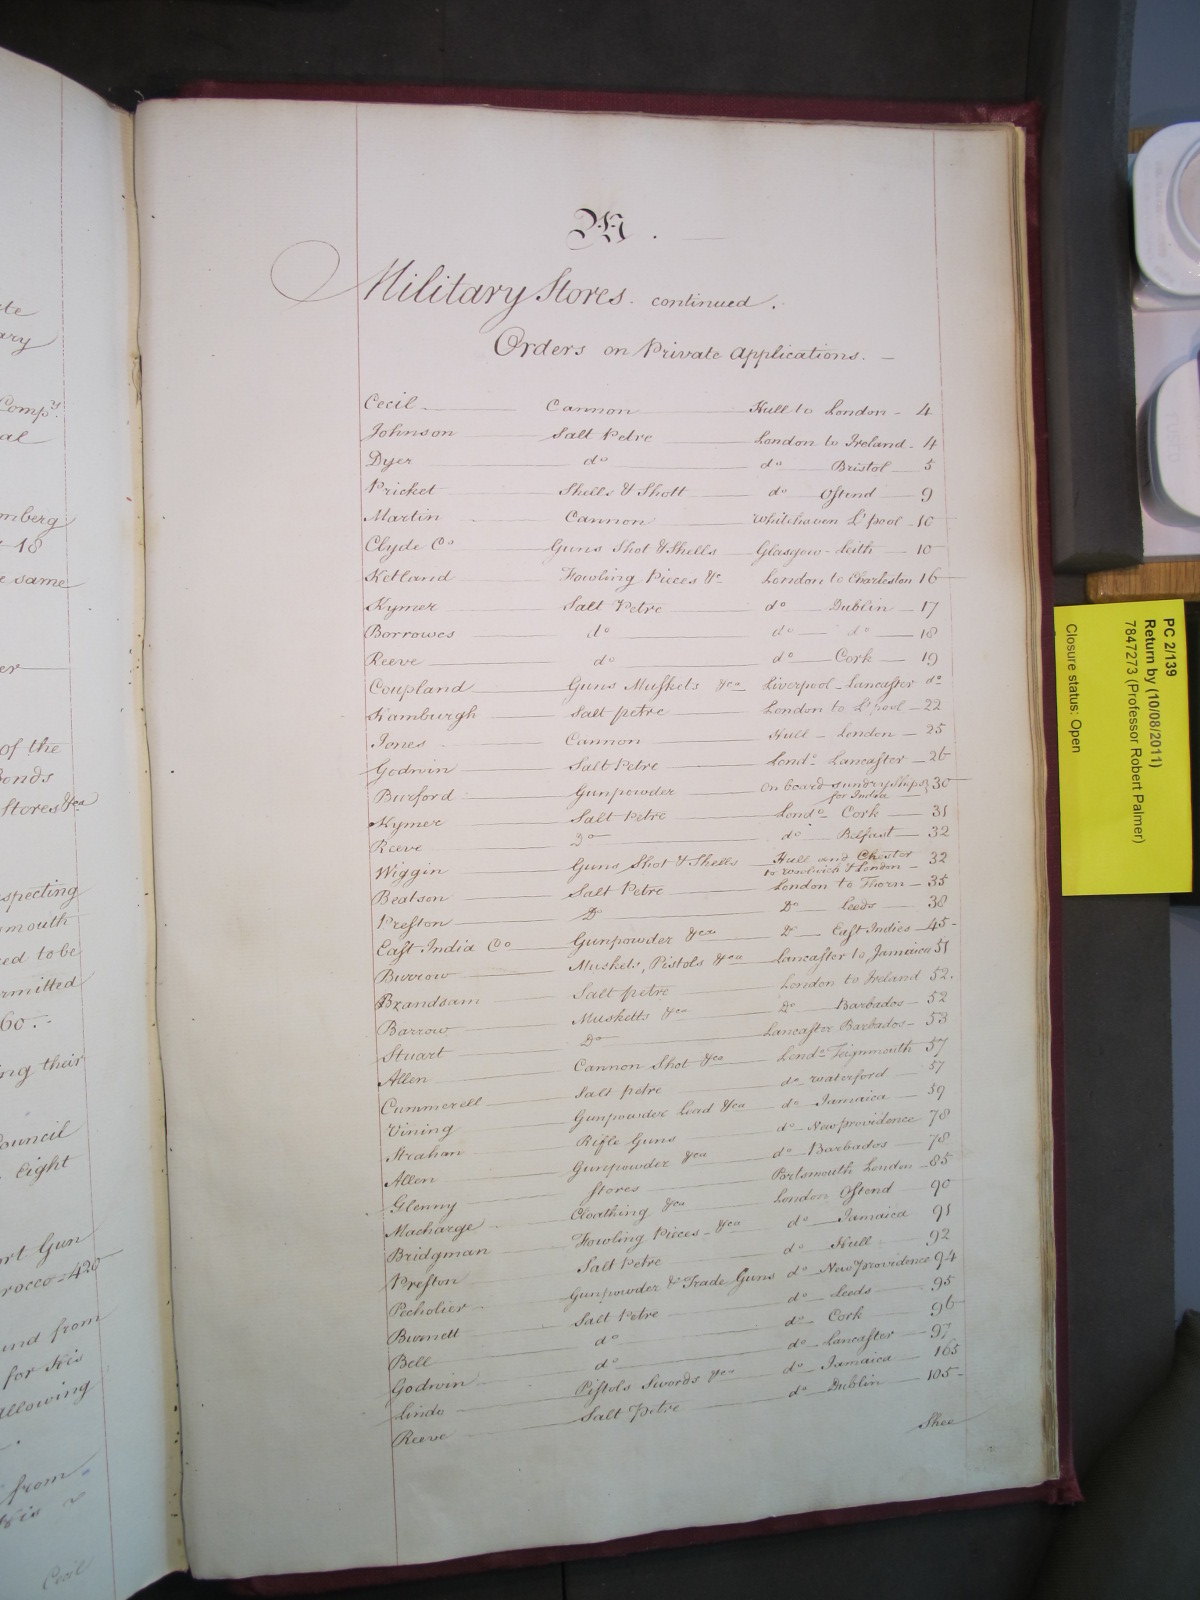 M.
Military Stores. continued.
Orders on Private Applications.
Cecil Cannon Hull to London - 4
Johnson Salt Petre London to Ireland - 4
Dyer do do Bristol - 5
Pricket Shells & Shott do Ostend - 9
Martin Cannon Whitehaven L'pool - 10
Clyde Co Guns Shot & Shells Glasgow - Leith - 10
Ketland Fowling Pieces &c London to Charleston 16
Kymer Salt Petre do Dublin - 17
Borrowes do do do - 18
Reeve do do Cork - 19
Coupland Guns Muskets &ca Liverpool - Lancaster do
Hamburgh Salt petre London to L'pool - 22
Jones Cannon Hull - London - 25
Godwin Salt Petre Londo Lancaster - 26
Burford Gunpowder On board sundry Ships for India 30
Kymer Salt Petre Londo Cork - 31
Reeve Do do Belfast - 32
Wiggin Guns Shot & Shells Hull and Chester to Woolwich & London - 32
Beatson Salt Petre London to Thorn - 35
Preston Do Do Leeds - 38
East India Co Gunpowder &ca Do East Indies - 45
Burrow Muskets, Pistols &ca Lancaster to Jamaica 51
Brandsam Salt petre London to Ireland 52.
Barrow Musketts &ca Do Barbados - 52
Stuart Do Lancaster Barbados - 53
Allen Cannon Shot &ca Londo Teignmouth 57
Cummerell Salt petre do Waterford - 57
Vining Gunpowder Lead &ca do Jamaica - 59
Strahan Rifle Guns do New providence 78
Allen Gunpowder &ca do Barbados - 78
Glenny Stores Portsmouth London - 85
Macharge Cloathing &ca London Ostend 90
Bridgman Fowling Pieces - &ca do Jamaica 91
Preston Salt Petre do Hull 92
Pecholier Gunpowder & Trade Guns do New providence 94
Burnett Salt Petre do Leeds - 95
Bell do do Cork 96
Godwin do do Lancaster - 97
Lindo Pistols Swords &ca do Jamaica - 165
Reeve Salt Petre do Dublin - 105
Shee
te
ary
Compy.
al
mberg
- 18
e same
er
of the
Bonds
Stores &ca
specting
mouth
ed to be
rmitted
60.
ing their
Council
Eight
ort Gun
rocco - 420
und from
for His
allowing
from
His
Cecil
PC 2/139
Return by (10/08/2011)
7847273 (Professor Robert Palmer)
Closure status: Open